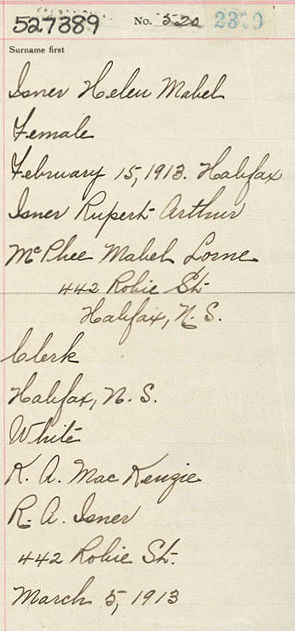 527389 No. 2370
Surname first
Isner Helen Mabel
Female
February 15, 1913. Halifax
Isner Rupert Arthur
McPhee Mabel Lorne
442 Robie St.
Halifax, N. S.
Clerk
Halifax, N. S.
White
K. A. MacKenzie
R. A. Isner
442 Robie St.
March 5, 1913